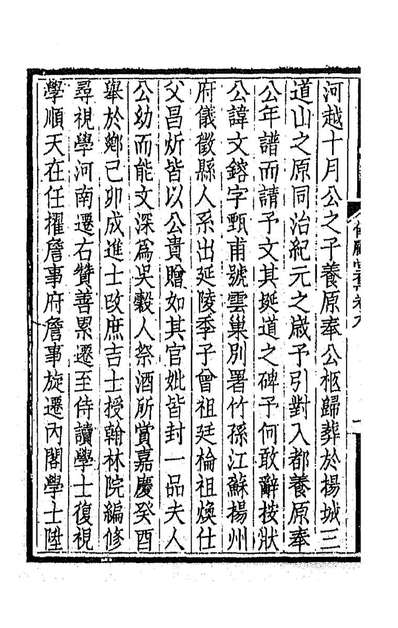 河越十月公之子養原奉公柩歸葬於楊城三
道山之原同治紀元之歲予引對入都養原奉
公年譜而請予文其埏道之碑予何敢辭按狀
公諱文鎔字甄甫號雲巢別署竹孫江蘇楊州
府儀徵縣人系出延陵季子曾祖廷棆祖煥仕
父昌炘皆以公貴贈如其官妣皆封一品夫人
公幼而能文深爲吳穀人祭酒所賞嘉慶癸酉
舉於鄉己卯成進士改庶吉士授翰林院編修
尋視學河南遷右贊善累遷至侍讀學士復視
學順天在任擢詹事府詹事旋遷內閣學士陞